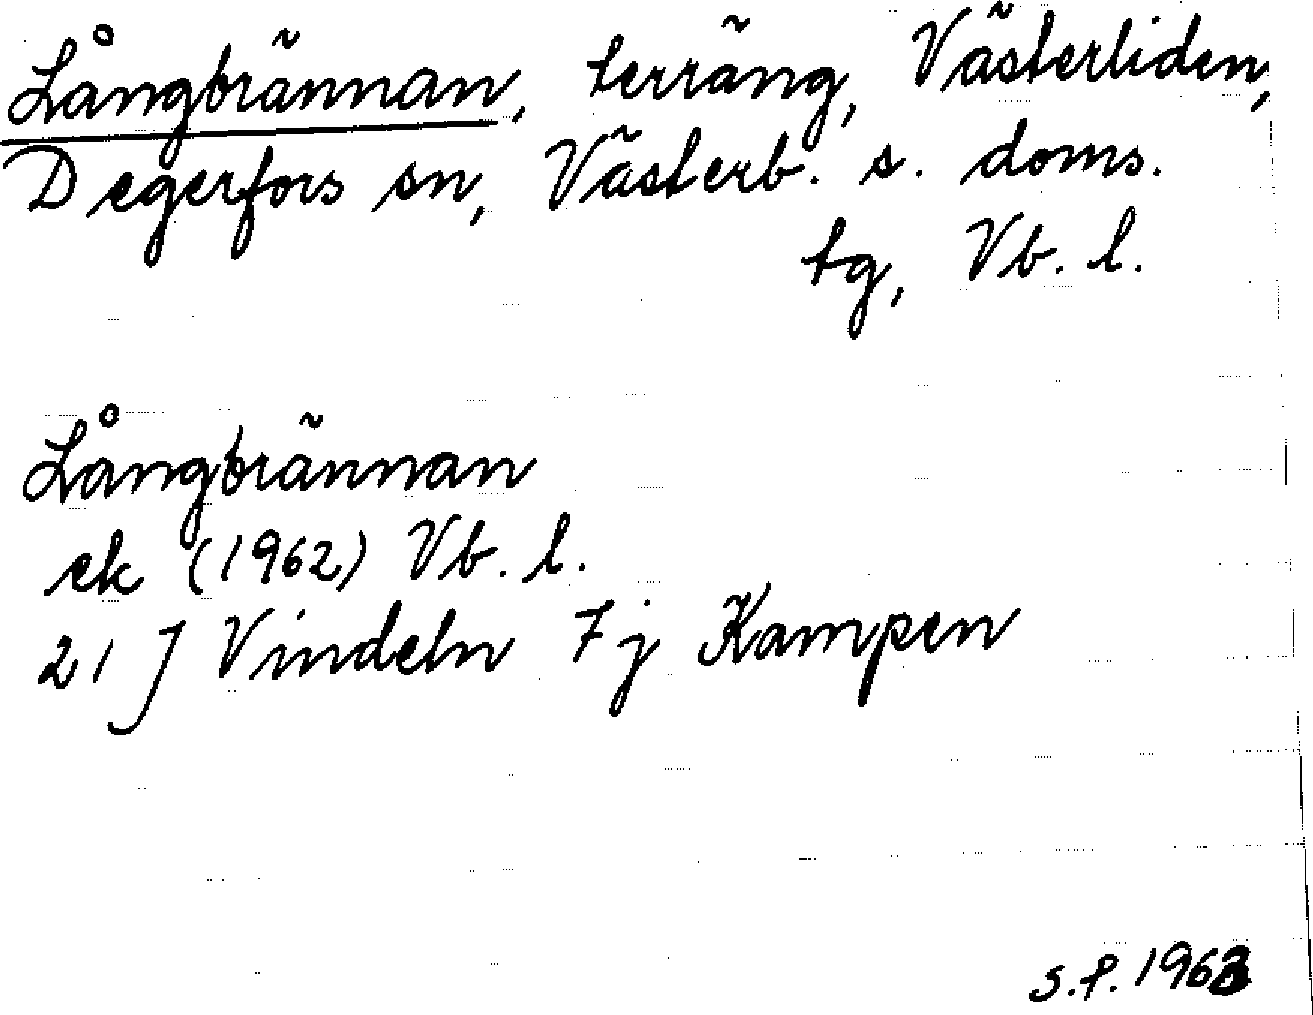 Långbrännan, terräng, Västerliden,
Degerfors sn, Västerb. s. doms.
tg, Vb. l.
Långbrännan
ek (1962) Vb. l.
21 J Vindeln 7j Kampen
S.P. 1963